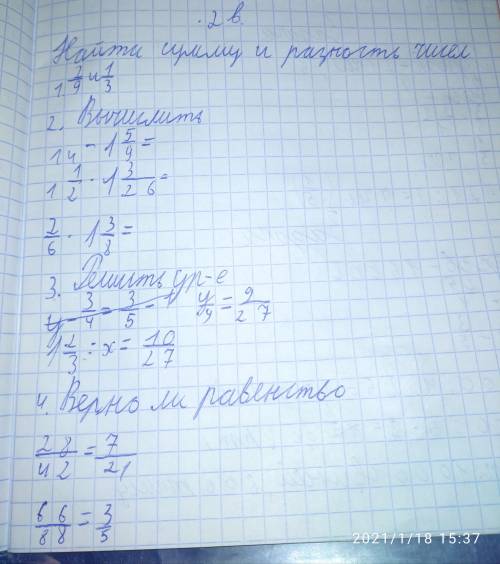 2 в.
Найти сумму и разность чисел
1. 7/9 и 1/3
2. Вычислить
14 - 1 5/9 =
1 1/2 · 1 3/26 =
2/6 · 1 3/8 =
3. Решить ур-е
y - 3/4 = 3/5 - 1 y/9 = 2/27
1 2/3 : x = 10/27
4. Верно ли равенство
28/42 = 7/21
66/88 = 3/5
2021/1/18 15:37